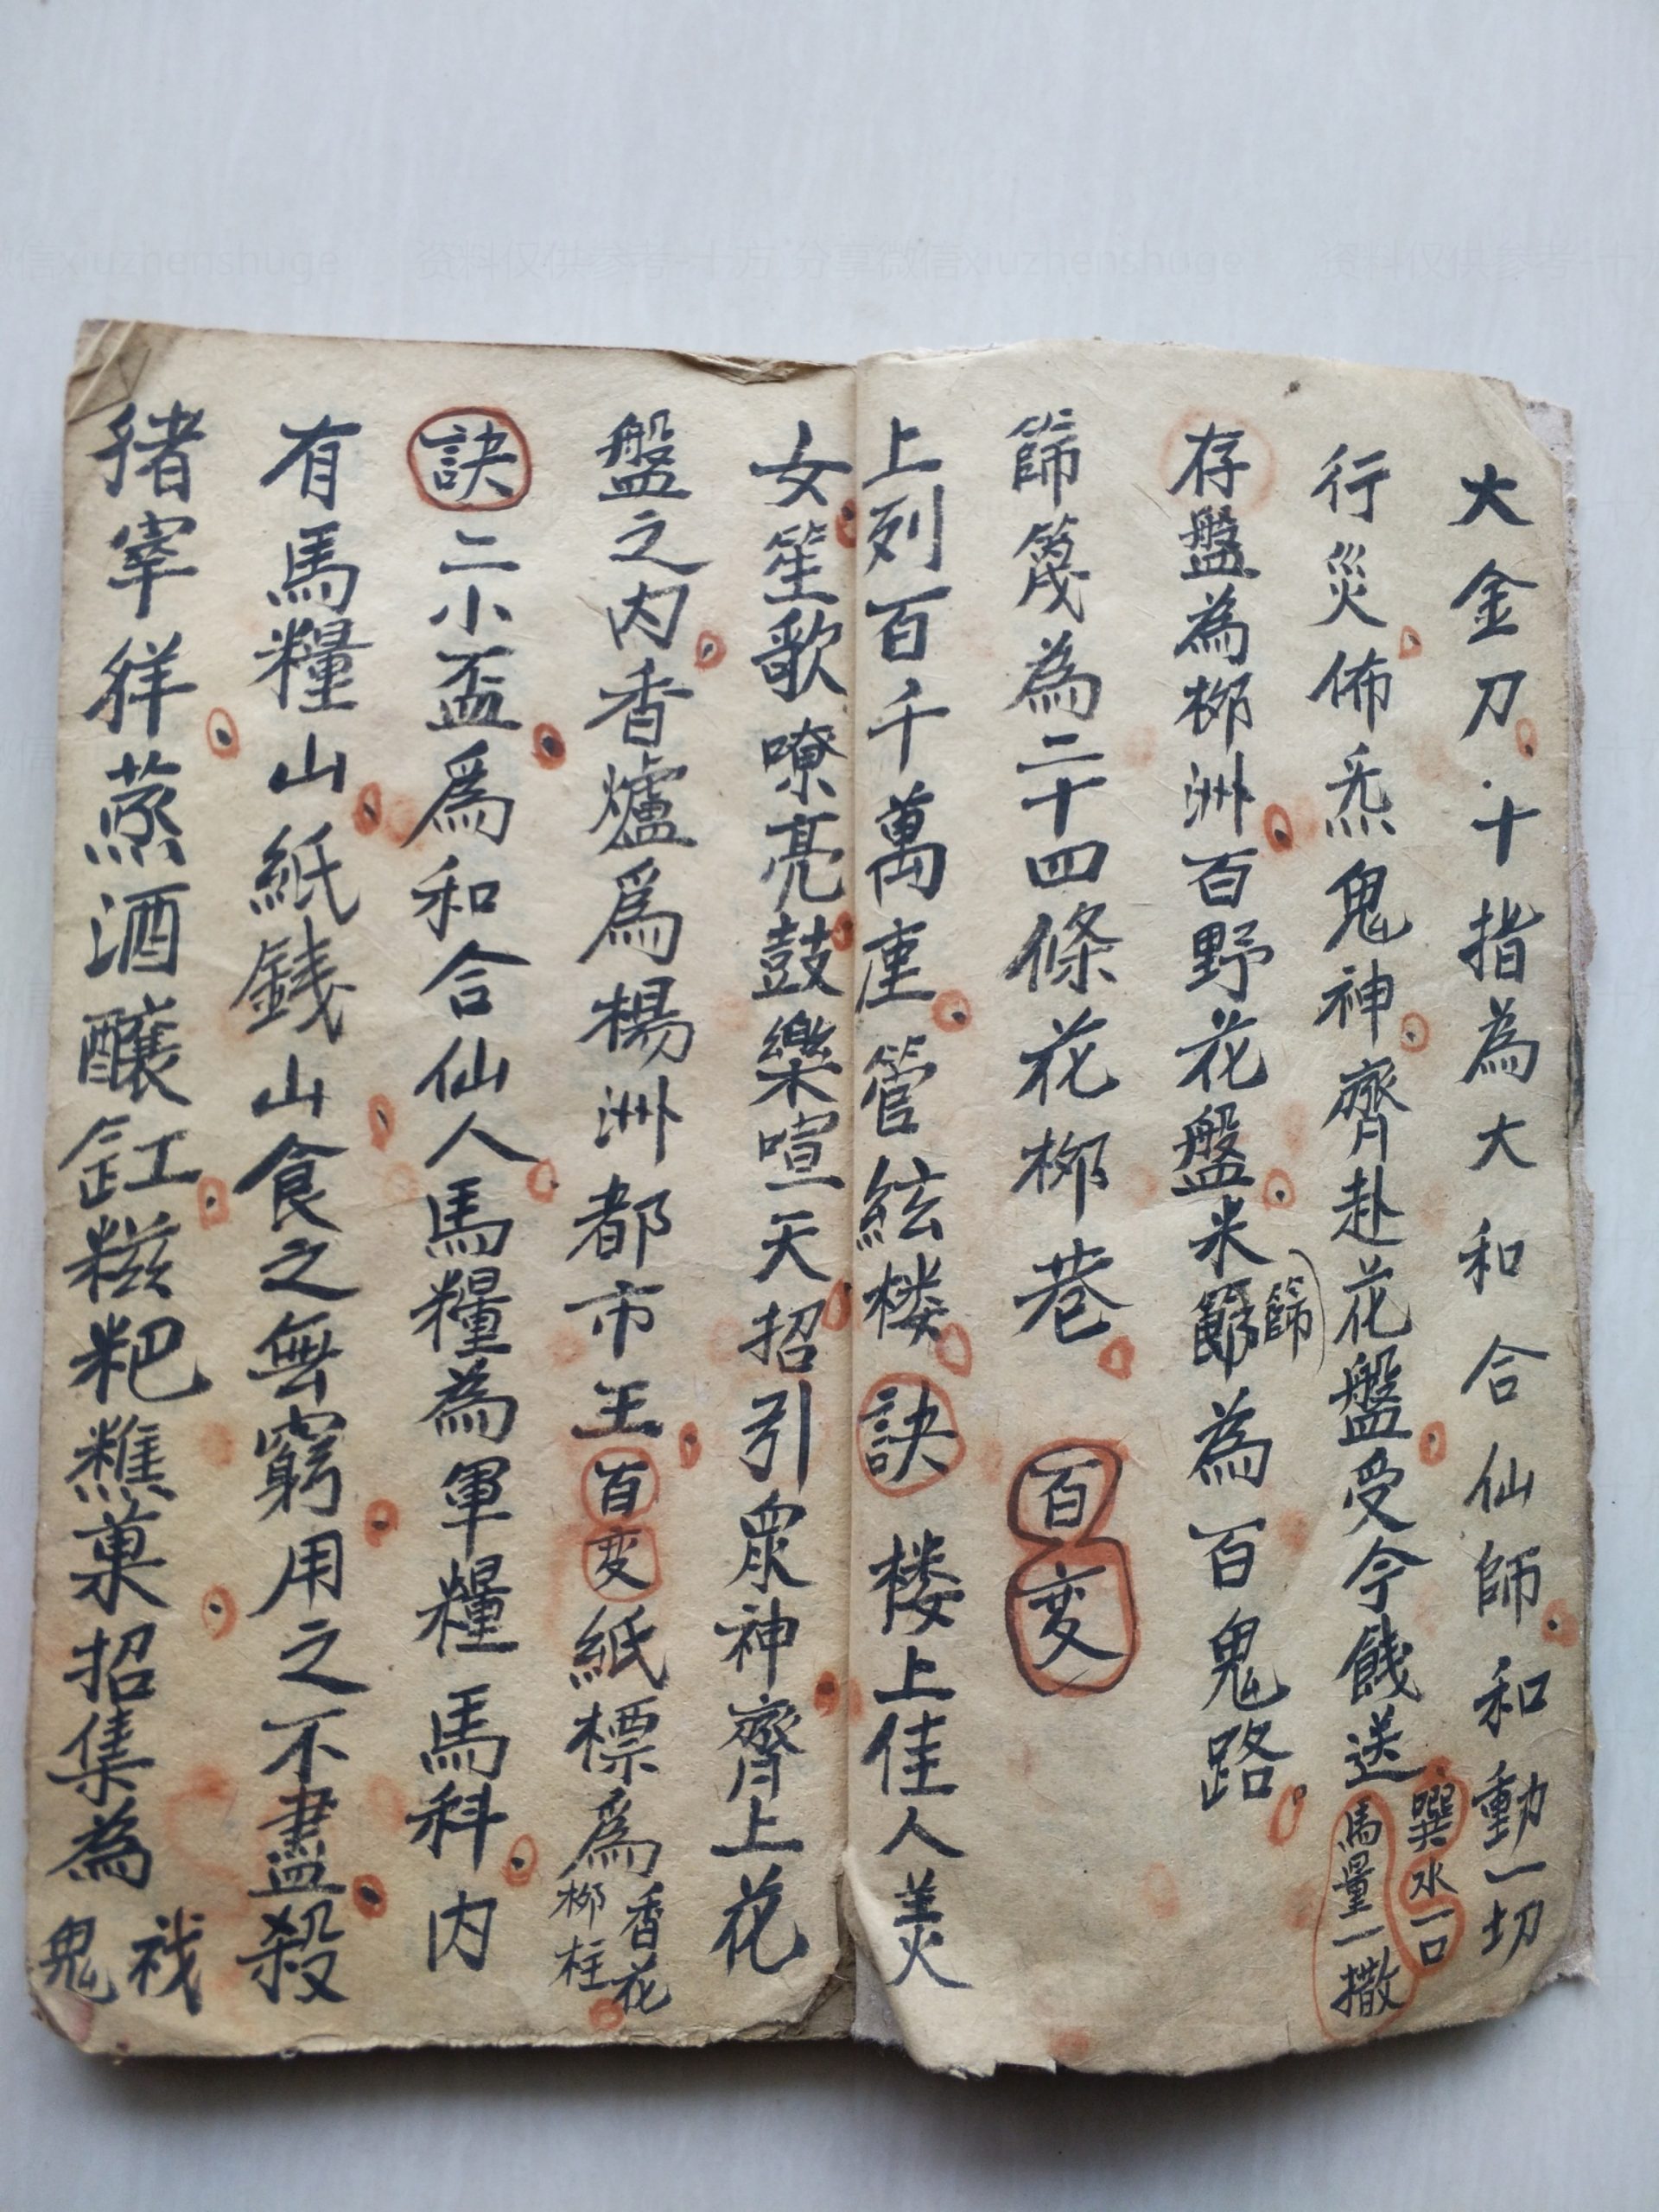 大金刀十指為大和合仙師和動一切
行災佈炁鬼神齊赴花盤受今餞送
噀水一口
馬量一撒
存盤為柳洲百野花盤米篩為百鬼路
篩
篩篾為二十四條花柳巷百変
上列百千萬座管絃楼訣楼上佳人美
女笙歌嘹亮鼓樂喧天招引眾神齊上花
盤之内香爐爲楊洲都市王百変紙標爲
香花
柳柱
訣二小盃爲和合仙人馬糧為軍糧馬科内
有馬糧山紙錢山食之無窮用之不盡殺
猪宰羊蒸酒釀缸糍粑糕菓招集為
鬼
資料仅供参考十方 分享微信xiuzhenshuge